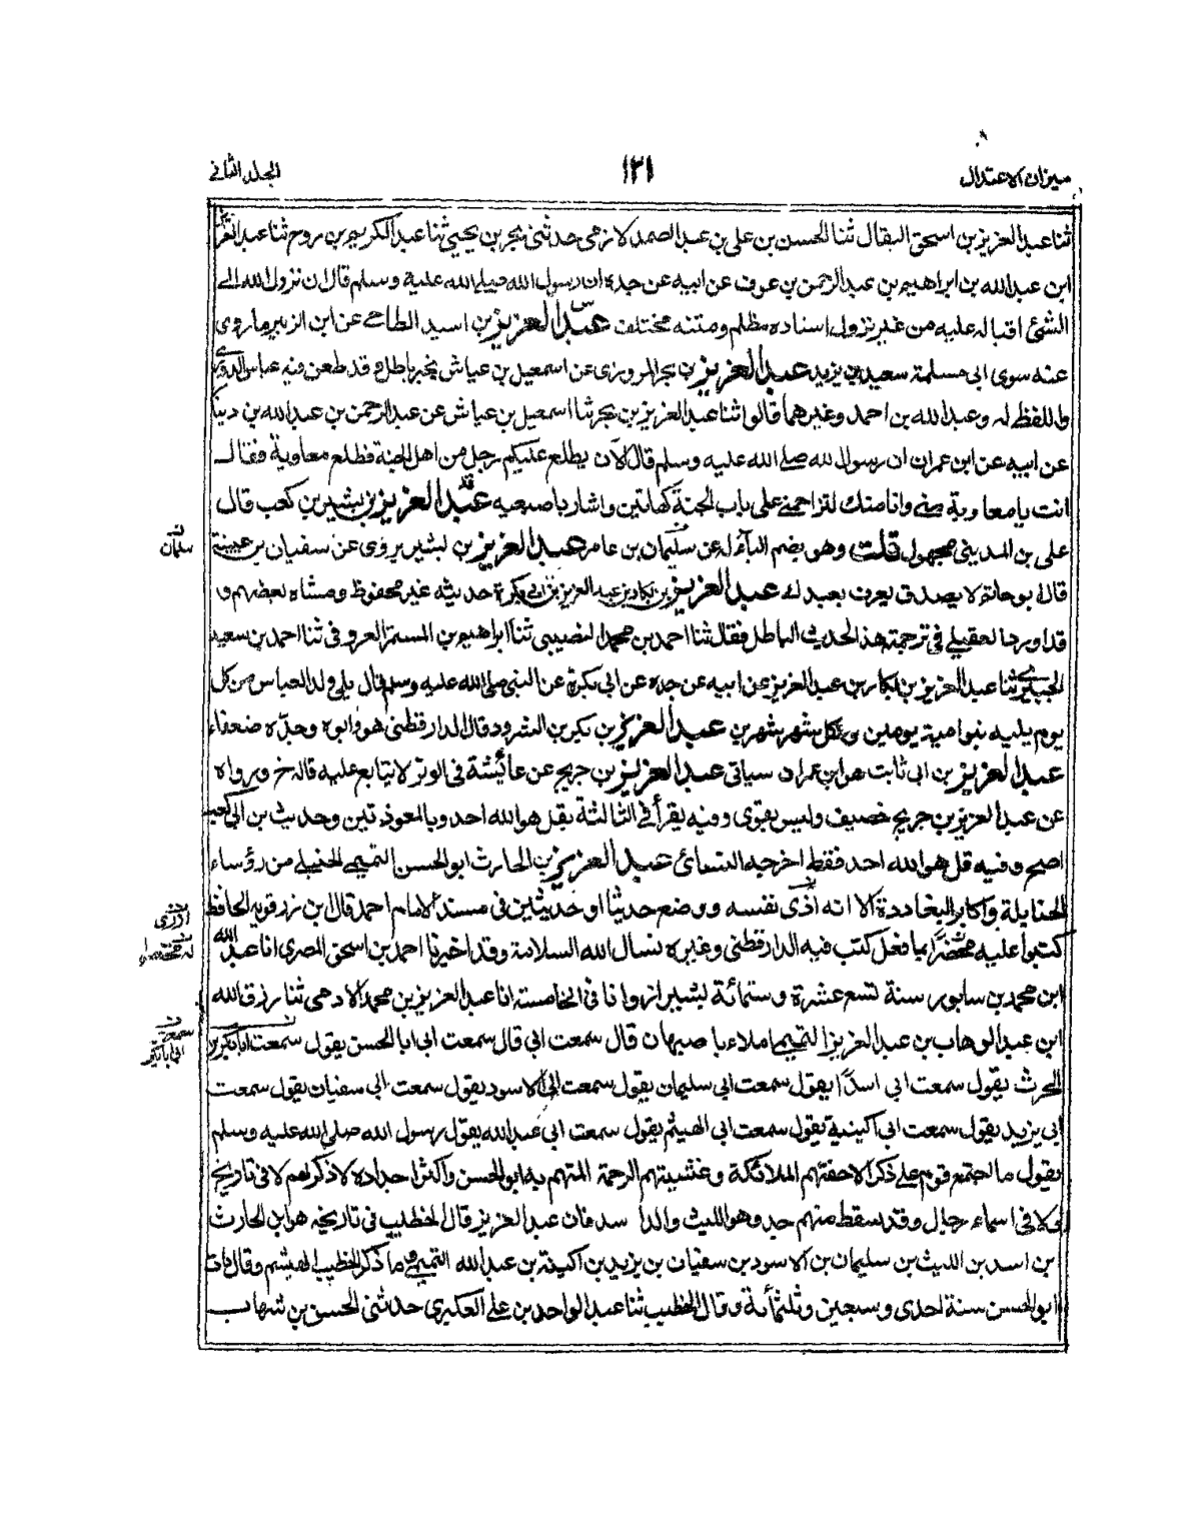 ميزان الاعتدال
١٢١
الجلد الثانى
ثنا عبد العزيز بن اسحق البقال ثنا الحسن بن على بن عبد الصمد لازهى حدثنى بحر بن يحيى ثنا عبد الكريم بن روح ثنا عبد الله
ابن عبد الله بن ابراهيم بن عبد الرحمن بن عوف عن ابيه عن جده ان رسول الله صلى الله عليه وسلم قال ان نزول الله الے
الشئ اقباله عليه من غير نزول اسناده مظلم ومتنه مختلف عبد العزيز بن اسيد الطاحے عن ابن الزبير ما روى
عنه سوى ابى مسلمة سعيد بن يزيد عبد العزيز بن بحر المروزى عن اسمعيل بن عياش بخبر باطل و قد طعن فيه عباس الدورى
واللفظ له وعبد الله بن احمد وغيرهما قالوا ثنا عبد العزيز بن بحر ثنا اسمعيل بن عياش عن عبد الرحمن بن عبد الله بن دينار
عن ابيه عن ابن عمر ان رسول لله صلے الله عليه وسلم قال الآن يطلع عليكم رجل من اهل الجنة فطلع معاوية فقال
انت يا معاوية منى وانا منك لتزاحمنے على باب الجنة كهاتين واشار باصبعيه عبد العزيز بن بشير بن كعب قال
على بن المدينى مجهول قلت وهو بضم الباء له عن سليمان بن عامر عبد العزيز بن بشير يروى عن سفيان بن عيينة
سلمان
قال ابو حاتم لا يصدق يعرف بعبدك عبد العزيز بن بكار بن عبد العزيز بن ابى بكرة حديثه غير محفوظ ومشاه بعضهم و
قد اورد العقيلے فى ترجمته هذا الحديث الباطل فقال ثنا احمد بن محمد النصيبى ثنا ابراهيم بن المستمر العروقى ثنا احمد بن سعيد
الجبيرى ثنا عبد العزيز بن بكار بن عبد العزيز عن ابيه عن جده عن ابى بكرة عن النبى صلى الله عليه وسلم قال يلى ولد العباس من كل
يوم يليه بنو امية يومين وبكل شهر شهرين عبد العزيز بن بكير بن الشرود قال الدارقطنى هو وابوه وجده ضعفاء
عبد العزيز بن ابى ثابت هو ابن عمران سياتى عبد العزيز بن جريج عن عائشة فى الوتر لا يتابع عليه قاله خ ورواه
عن عبد العزيز بن جريج خصيف وليس بقوى وفيه يقرأ فى الثالثة بقل هو الله احد وبالمعوذتين وحديث بن ابى كعب
اصح وفيه قل هو الله احد فقط اخرجه النسائ عبد العزيز بن الحارث ابو الحسن التميمے الحنبلے من رؤساء
الحنابلة واكابر البغاددة الا انه اذى نفسه ووضع حديثا او حديثين فى مسند الامام احمد قال ابن زرقويه الحافظ
كتبوا عليه محضرا بما فعل كتب فيه الدارقطنى وغيره نسال الله السلامة وقد اخبرنا احمد بن اسحق المصرى انا عبد الله
ابن محمد بن سابور سنة تسع عشرة وستمائة بشيراز وانا فى الخامسة انا عبد العزيز بن محمد الادمى ثنا رزق الله
ابن عبد الوهاب بن عبد العزيز التميمے املاء باصبهان قال سمعت ابى قال سمعت ابى ابا الحسن يقول سمعت ابا بكر بن
الحرث يقول سمعت ابى اسدا يقول سمعت ابى سليمان يقول سمعت ابى الاسود يقول سمعت ابى سفيان يقول سمعت
ابى يزيد يقول سمعت ابى اكينية يقول سمعت ابى الهيثم يقول سمعت ابى عبد الله يقول رسول الله صلى الله عليه وسلم
يقول ما اجتمع قوم على ذكر الا حفتهم الملائكة وغشيتهم الرحمة المتهم به ابو الحسن واكثر اجداده لا ذكر لهم لا فى تاريخ
ولا فى اسماء رجال وقد سقط منهم جد وهو الليث والد اسد فان عبد العزيز قال الخطيب فى تاريخه هو ابن الحارث
بن اسد بن الليث بن سليمان بن الاسود بن سفيان بن يزيد بن اكينة بن عبد الله التميمے وما ذكر الخطيب الهيثم وقال مات
ابو الحسن سنة احدى وسبعين وثلثمائة وقال الخطيب ثنا عبد الواحد بن على العكبرى حدثنى الحسن بن شهاب